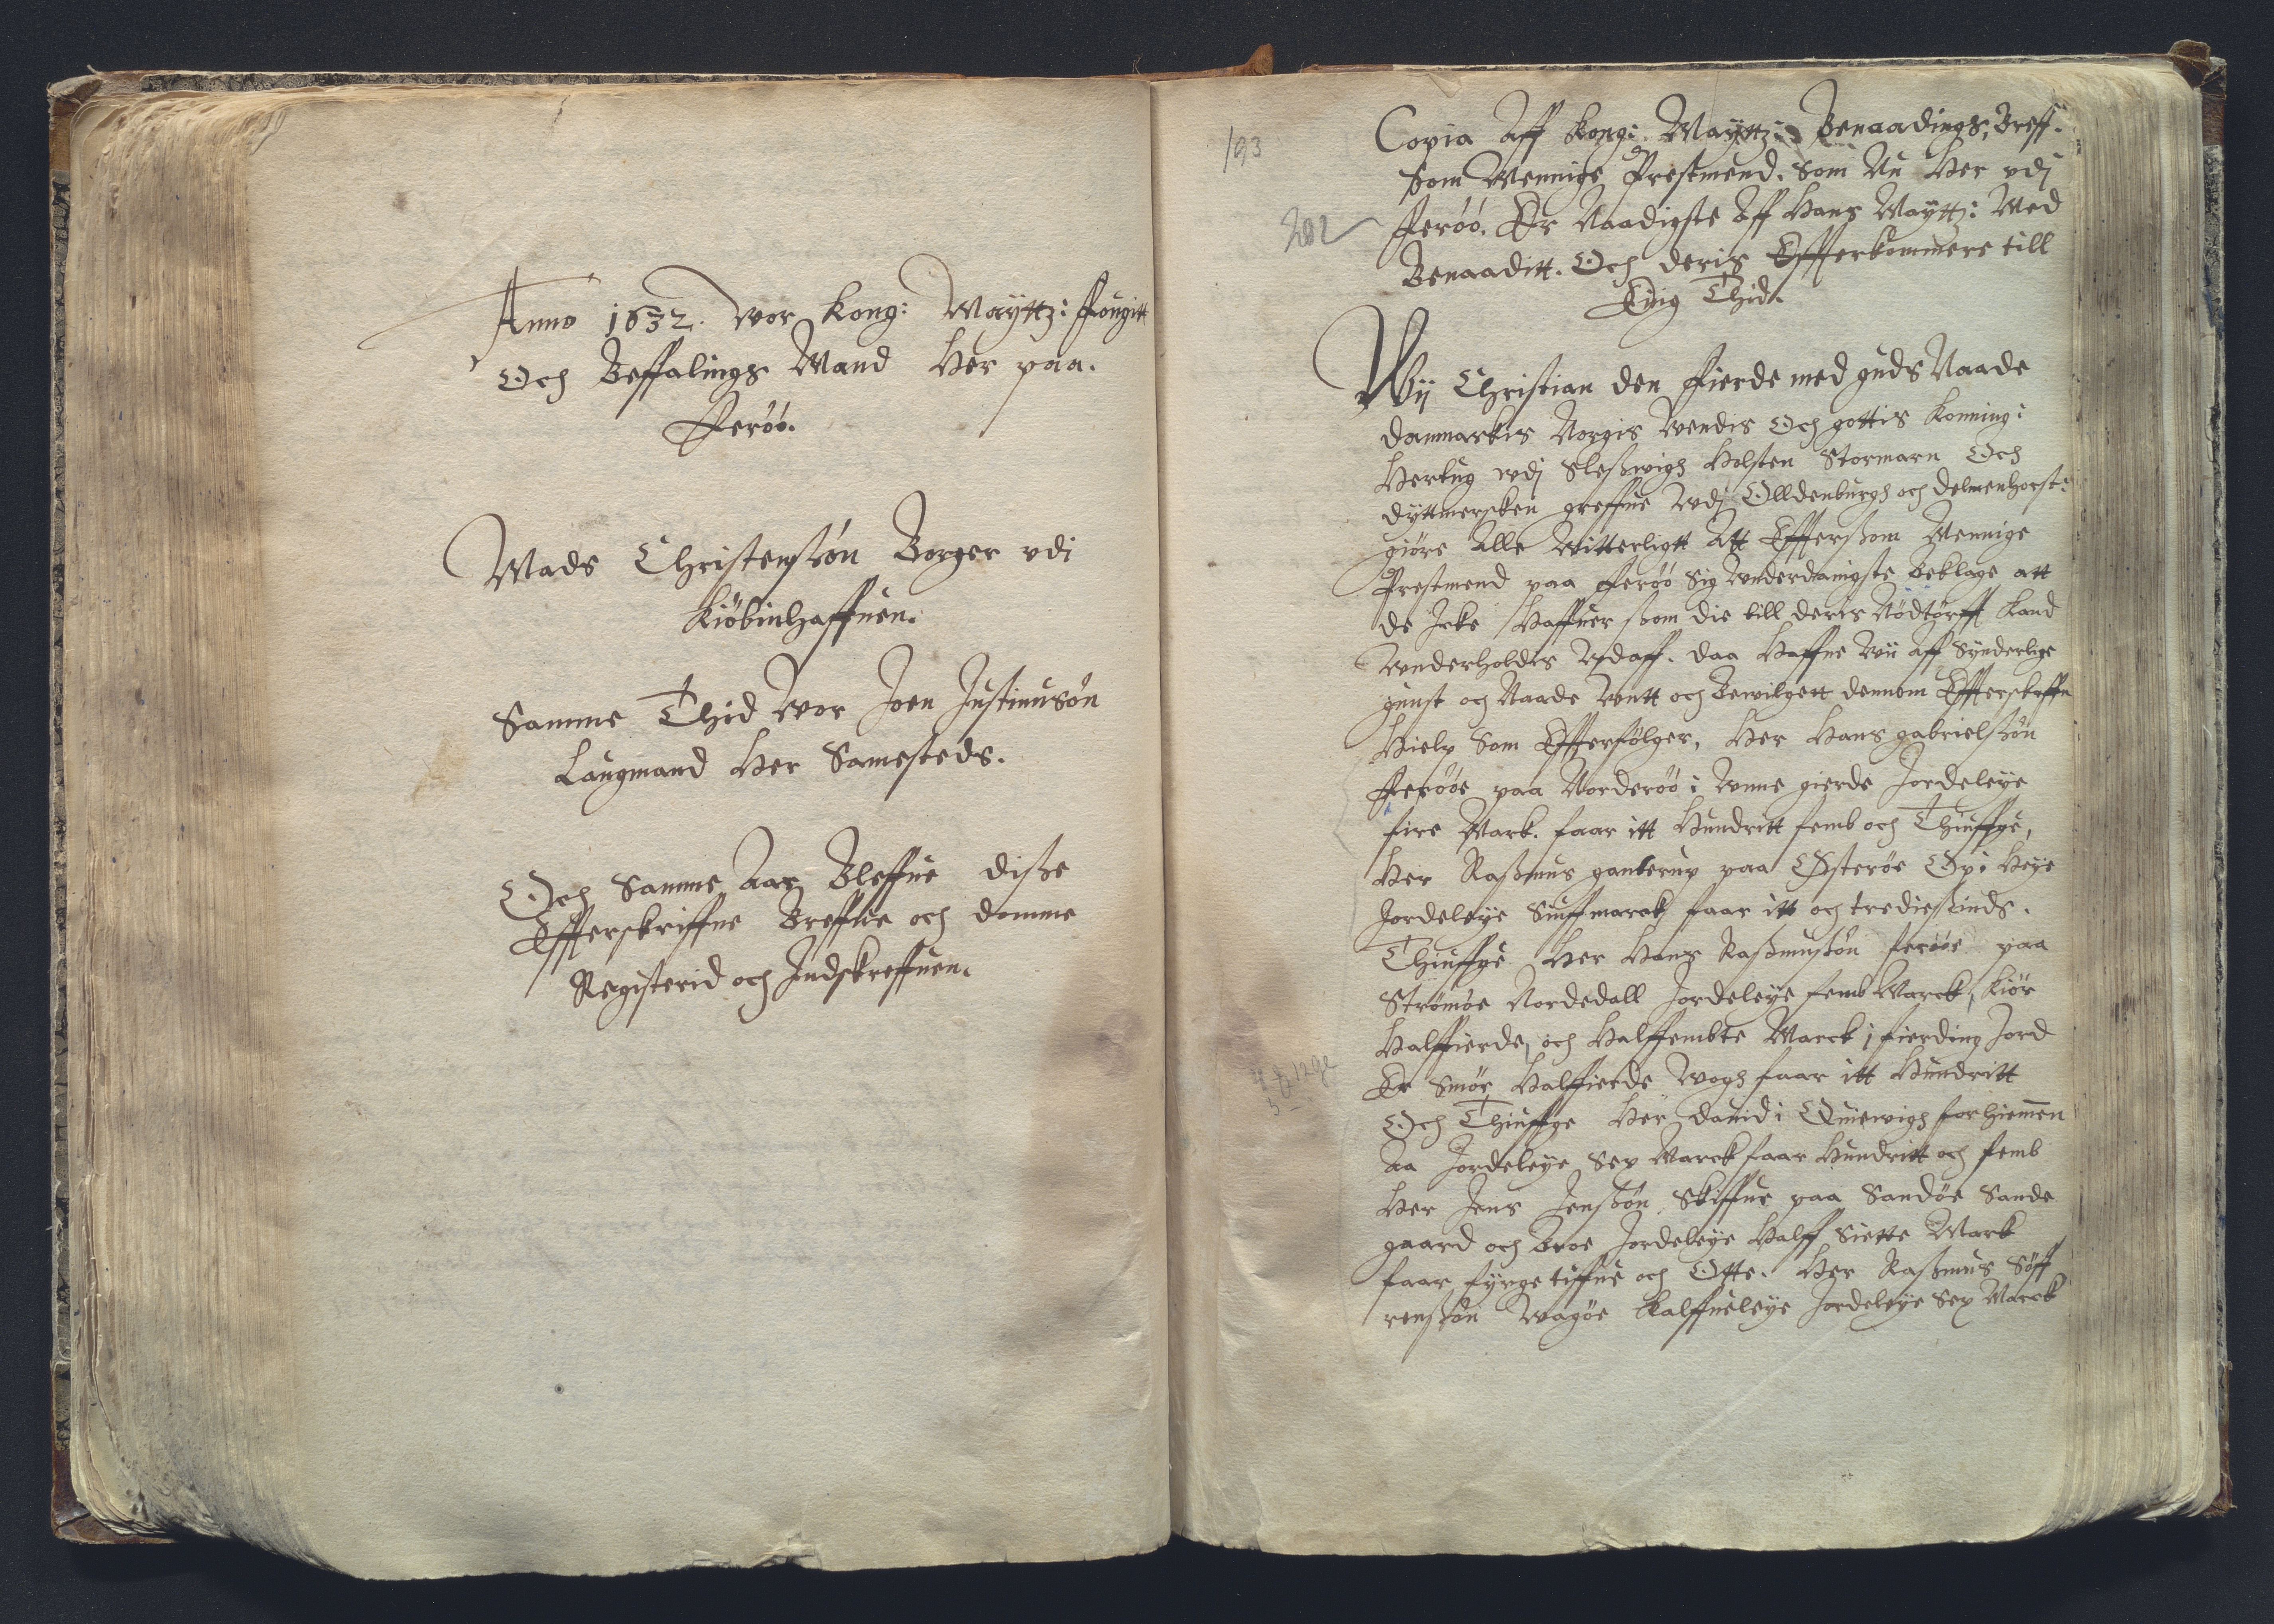 Anno 1632. vor Kong: Mayttz: Fougitt
Och Beffalings Mand Her paa.
Ferøø.
Mads Christensøn Borger vdi
Kiøbinhaffuen.
Samme Thid vor Joen Justinusøn
Laugmand Her Samesteds.
Och Samme Aar Bleffue disse
Effterskriffne Breffue och domme
Registerid och Indskreffuen.
193
Copia Aff Kong: Mayttz: Benaadings, Breff.
som Mennige Prestmend. Som Nu Her vdj
202
Ferøø. Er Naadigste Aff Hans Maytt: Med
Benaaditt. Och deris Effterkommere till
Euig Thid.
Wij Christian den Fierde med guds Naade
Danmarkis Norgis Wendis Och gottis Konning:
Hertug wdj Sleßwigh Holsten Stormarn Och
dyttmersken greffue Wdj Olldenburgh och delmenhorst:
giøre Alle Witterligtt Att Effterßom Mennige
Prestmend paa Fferøø sig Wnderdanigste beklage att
de Icke Haffuer ßom die till deris Nødtørfft kand
Wnderholdes Wdaff. daa Haffue Wii Aff Synderlige
gunst och Naade Wntt och Bewilgett dennom Effterskreffne
Hielp Som Effterfølger, Her Hans gabrielßøn
Fferøøe paa Norderøø i Wnne gierde Jordeleye
fire Mark. faar itt Hundritt femb och Thiuffge,
Her Raßmus ganterup paa Østerøe Øpi Heye
Jordeleye Siuffmarck faar itt och trediesinds.
Thiuffge Her Hans Raßmußøn ferøøe paa
Strømøe Nordedall Jordeleye femb Marck, Kiør
Halffierde, och Halffembte Marck i fierding Jord
Er Smør Halffierde Wogh faar itt Hundritt
Och Thiuffge Her dauid i Quiewigh forhiemen
Aa Jordeleye Sex Marck faar Hundritt och femb
Her Jens Jenßøn Skiffue paa Sandøe Sande
gaard och Troe Jordeleye Halff Siette Mark
faar fyrgetiffue och Otte. Her Raßmus Søff
renßøn Wagøe Kalffueleye Jordeleye Sex Marck